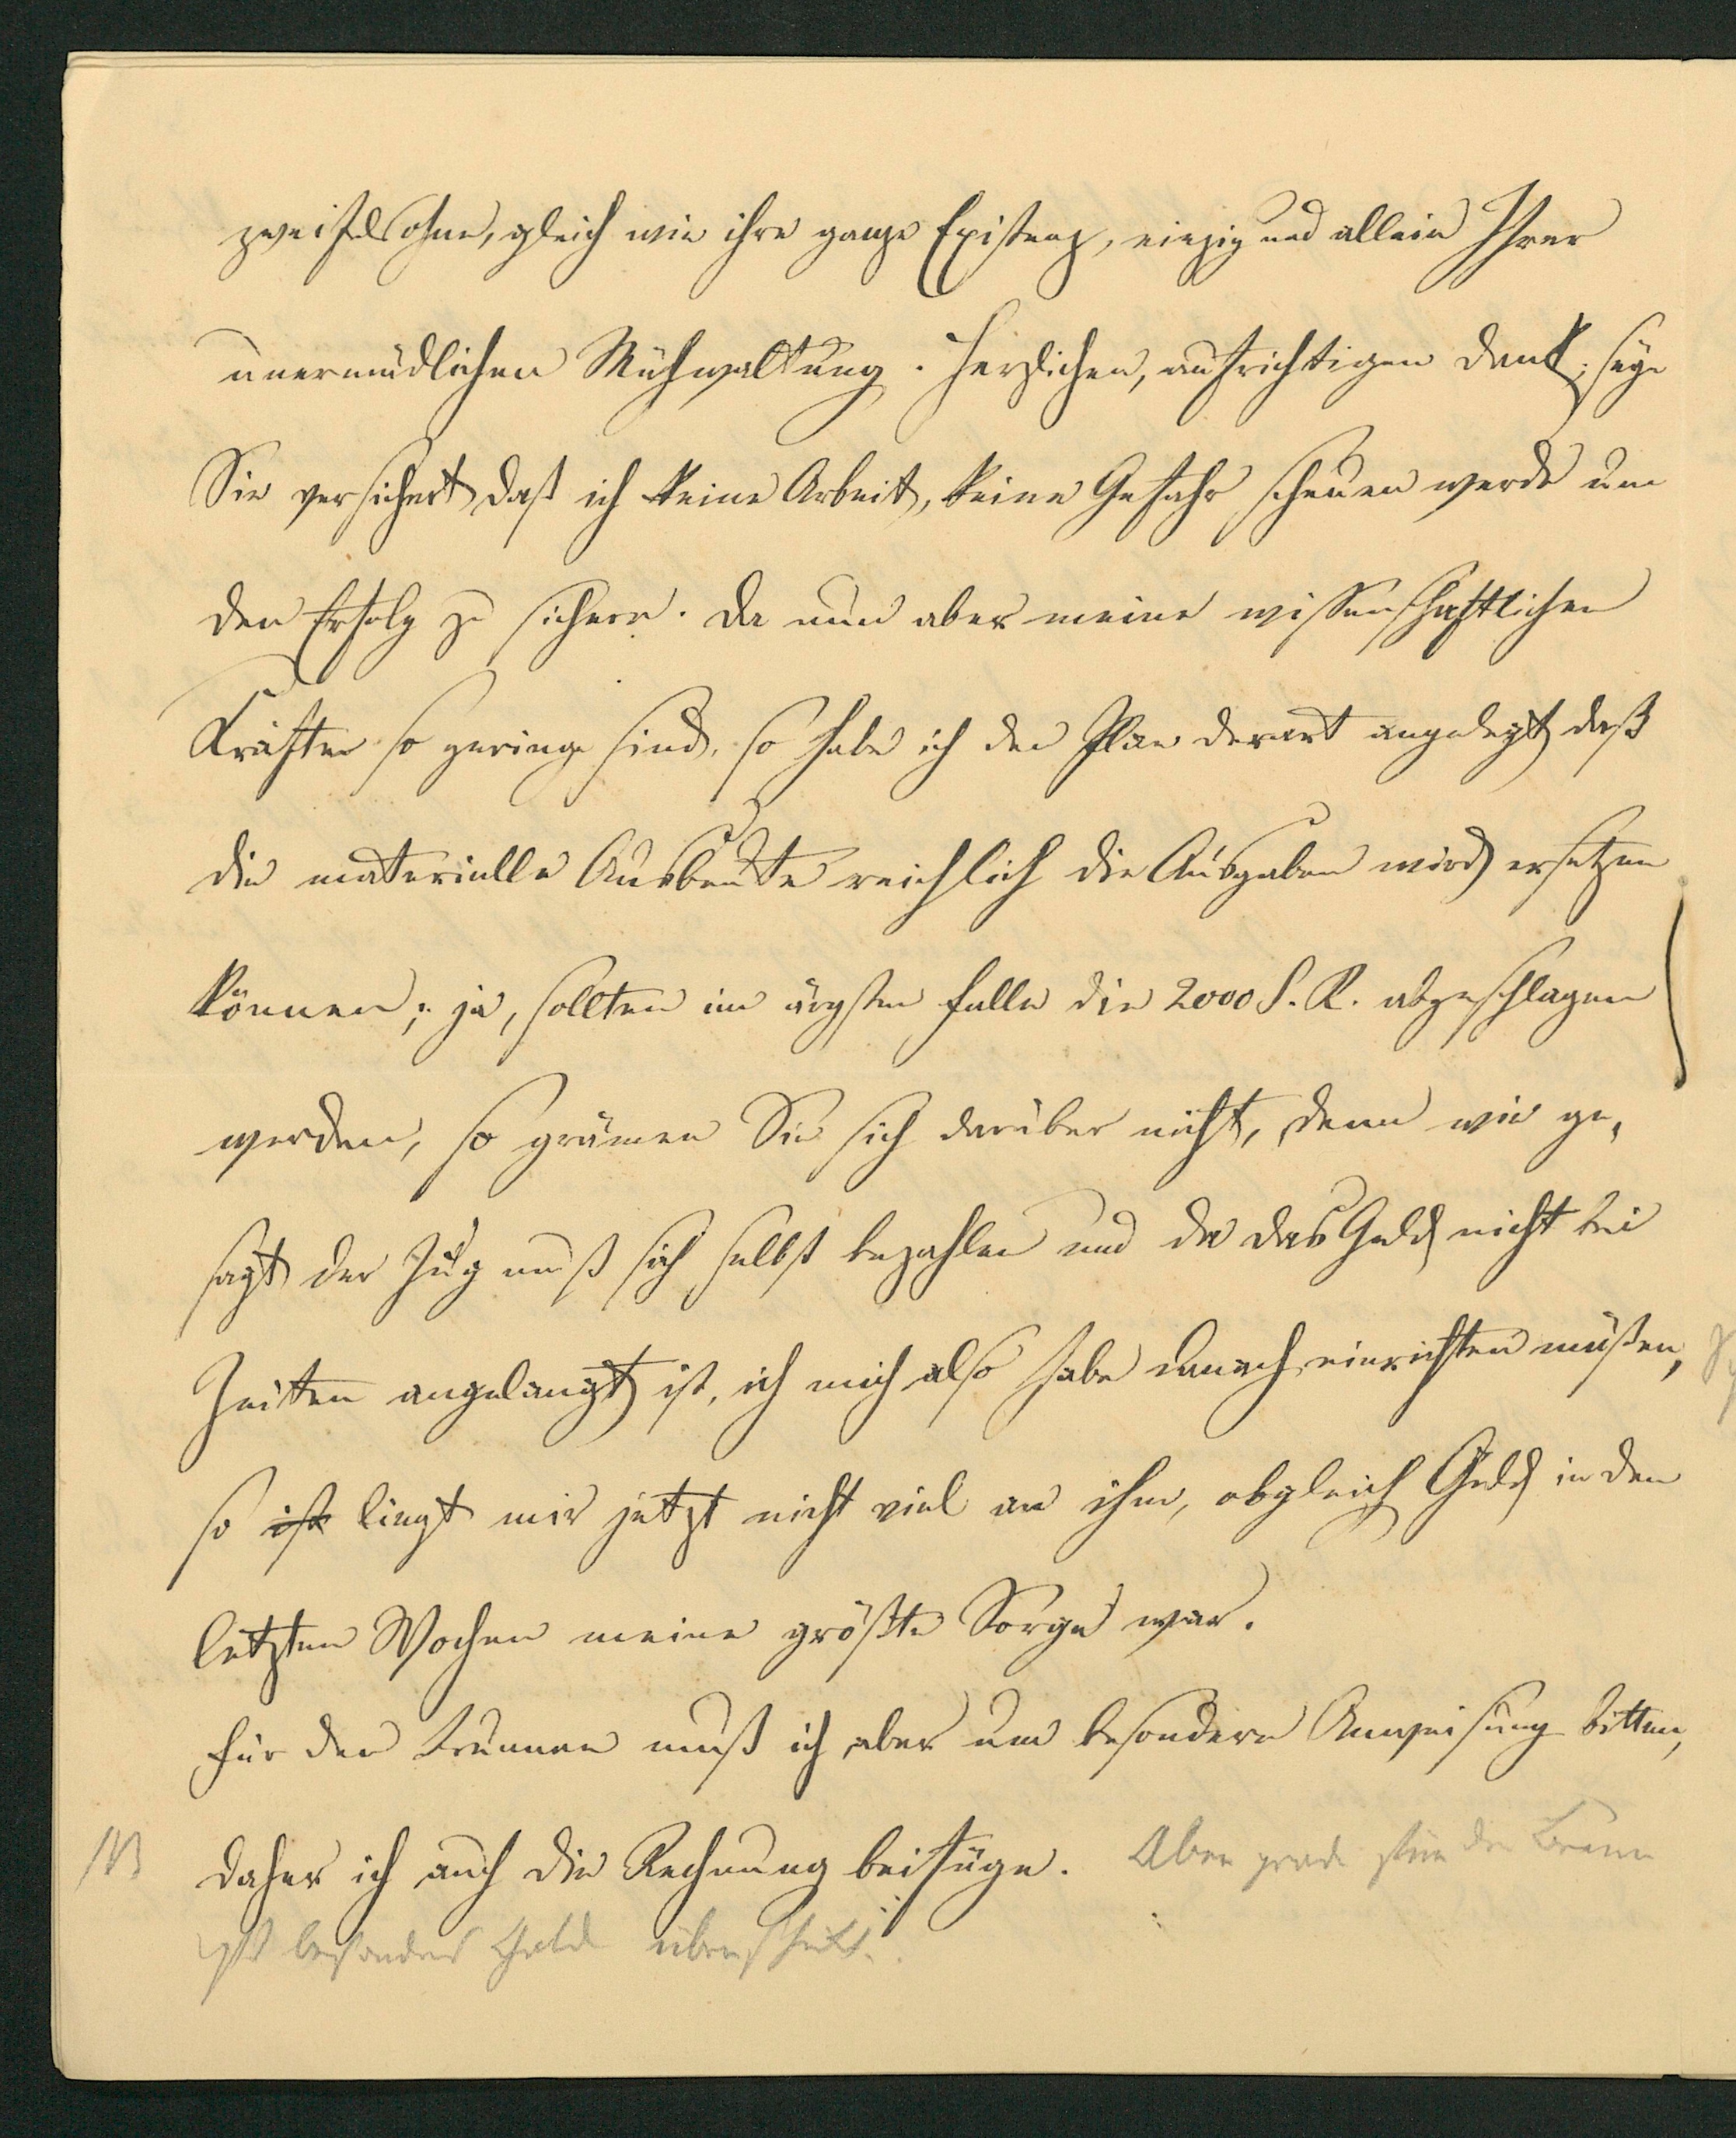 zweifelsohne, gleich wie ihre ganze Existenz, einzig und allein Ihrer
unermüdlichen Mühwaltung. Herzlichen, aufrichtigen Dank; seye
Sie versichert daß ich keine Arbeit, keine Gefahr scheuen werde um
den Erfolg zu sichern. Da nun aber meine wissenschaftlichen
Kräfte so geringe sind, so habe ich den Plan derart angelegt daß
die materielle Ausbeute reichlich die Ausgaben wird ersetzen
können; ja, sollten im ärgsten Falle die 2000 S. R. abgeschlagen
werden, so grämen Sie sich darüber nicht, denn wie ge-
sagt der Zug muß sich selbst bezahlen und da das Geld nicht bei
Zeiten angelangt ist, ich mich also habe danach einrichten müßen,
so ist liegt mir jetzt nicht viel an ihm, obgleich Geld in den
letzten Wochen meine größte Sorge war.
Für den Brunnen muß ich aber um besondere Anweisung bitten,
NB daher ich auch die Rechnung beifüge. Aber grade für den Brunn
ist besonders Geld überschickt.